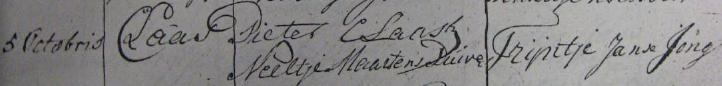 5 Octobris Claas Pieter Claasz Trijntje Jans Jong
Neeltje Maartens Duives